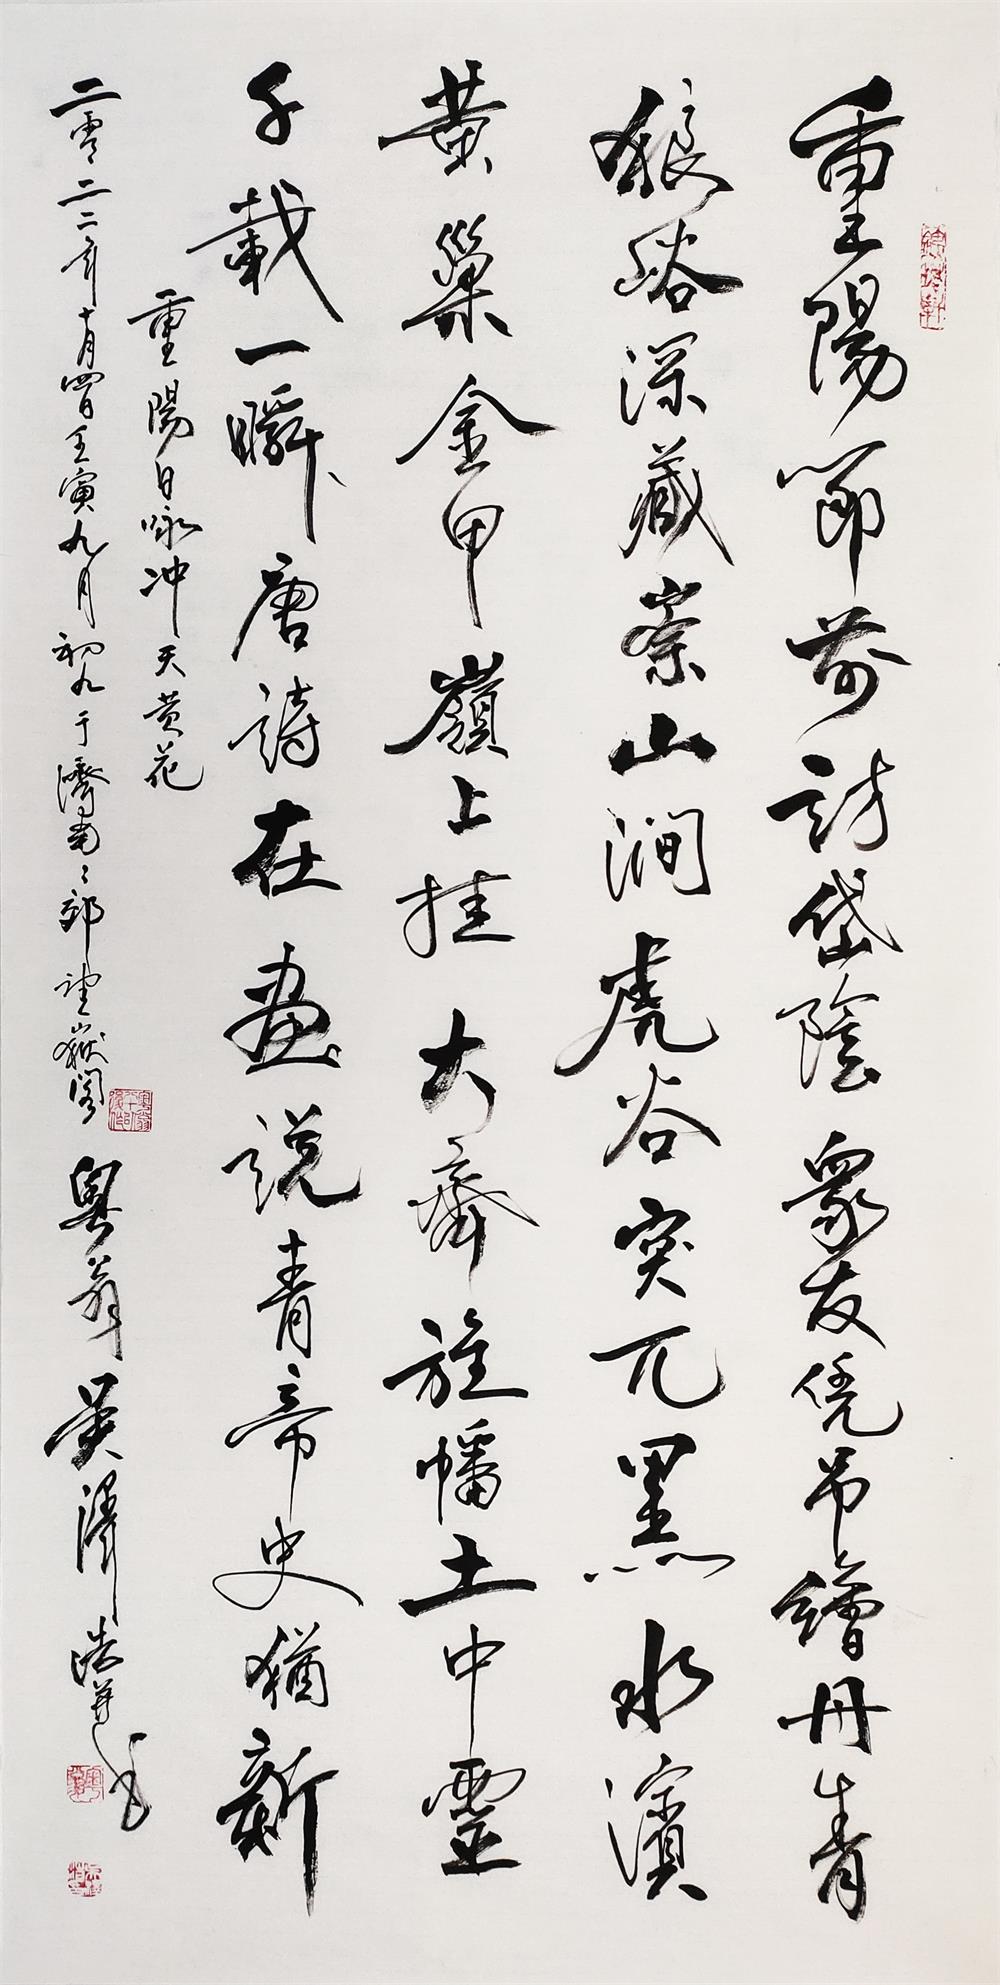 重陽節前訪岱陰衆友凭吊繪丹青
狼峪深藏崇山澗虎谷突兀黑水濱
黄巢金甲嶺上挂大齊旌幡土中靈
千載一瞬唐詩在画説青帝史猶新
重陽日咏冲天黄花
二零二二年十月四日壬寅九月初九于濟南々郊望嶽閣
粤翁吴澤浩并書